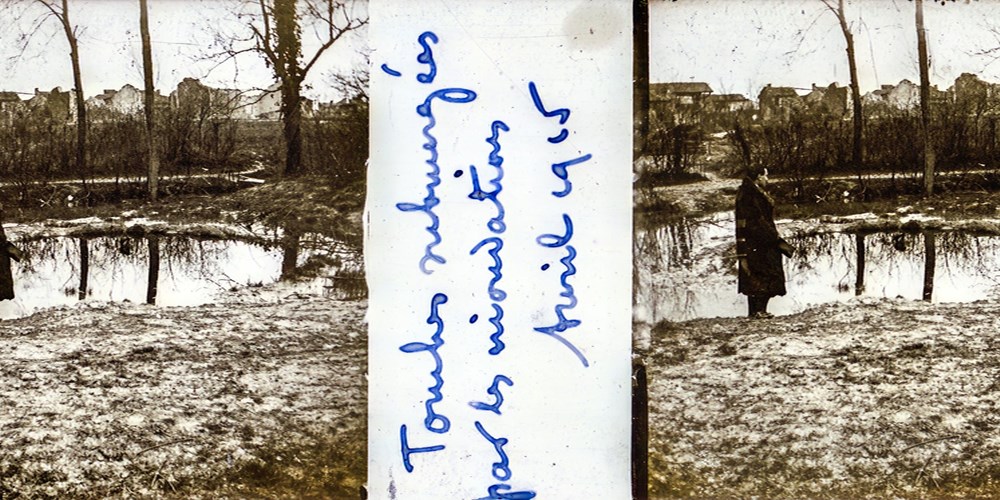 Tombes submergées
par les inondations
Avril 1915